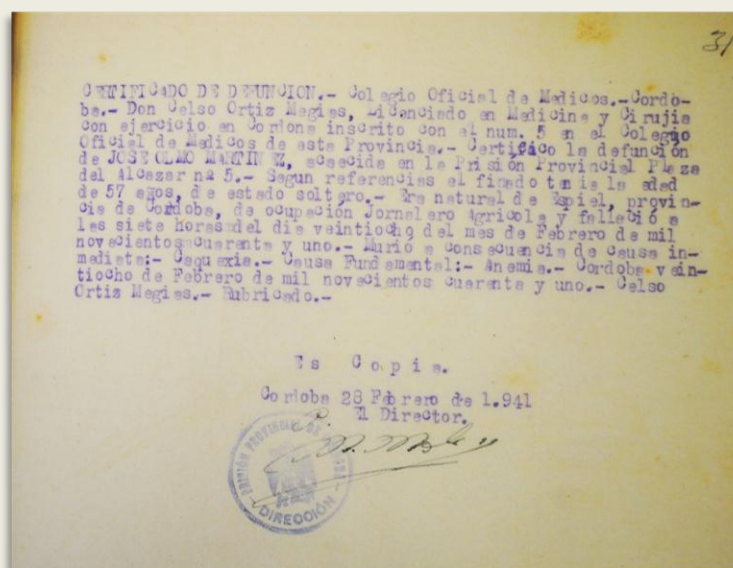 31
CERTIFICADO DE DEFUNCION.- Colegio Oficial de Medicos.-Cordo-
ba.- Don Celso Ortiz Megias, Licenciado en Medicina y Cirujia
con ejercicio en Cordona inscrito con el num. 5 en el Colegio
Oficial de Medicos de esta Provincia.- Certifico la defunción
de JOSE OLMO MARTINEZ, acaecida en la Prisión Provincial Plaza
del Alcazar nº 5.- Segun referencias el finado tenia la edad
de 57 años, de estado soltero.- Era natural de Espiel, provin-
cia de Cordoba, de ocupación Jornalero Agricola y falleció a
las siete horas del dia veintiocho del mes de Febrero de mil
novecientos cuarenta y uno.- Murió a consecuencia de causa in-
mediata:- Caquexia.- Causa Fundamental:- Anemia.- Cordoba vein-
tiocho de Febrero de mil novecientos cuarenta y uno.- Celso
Ortiz Megias.- Rubricado.-
Es Copia.
Cordoba 28 Febrero de 1.941
El Director.
PRISIÓN PROVINCIAL DE
DIRECCIÓN